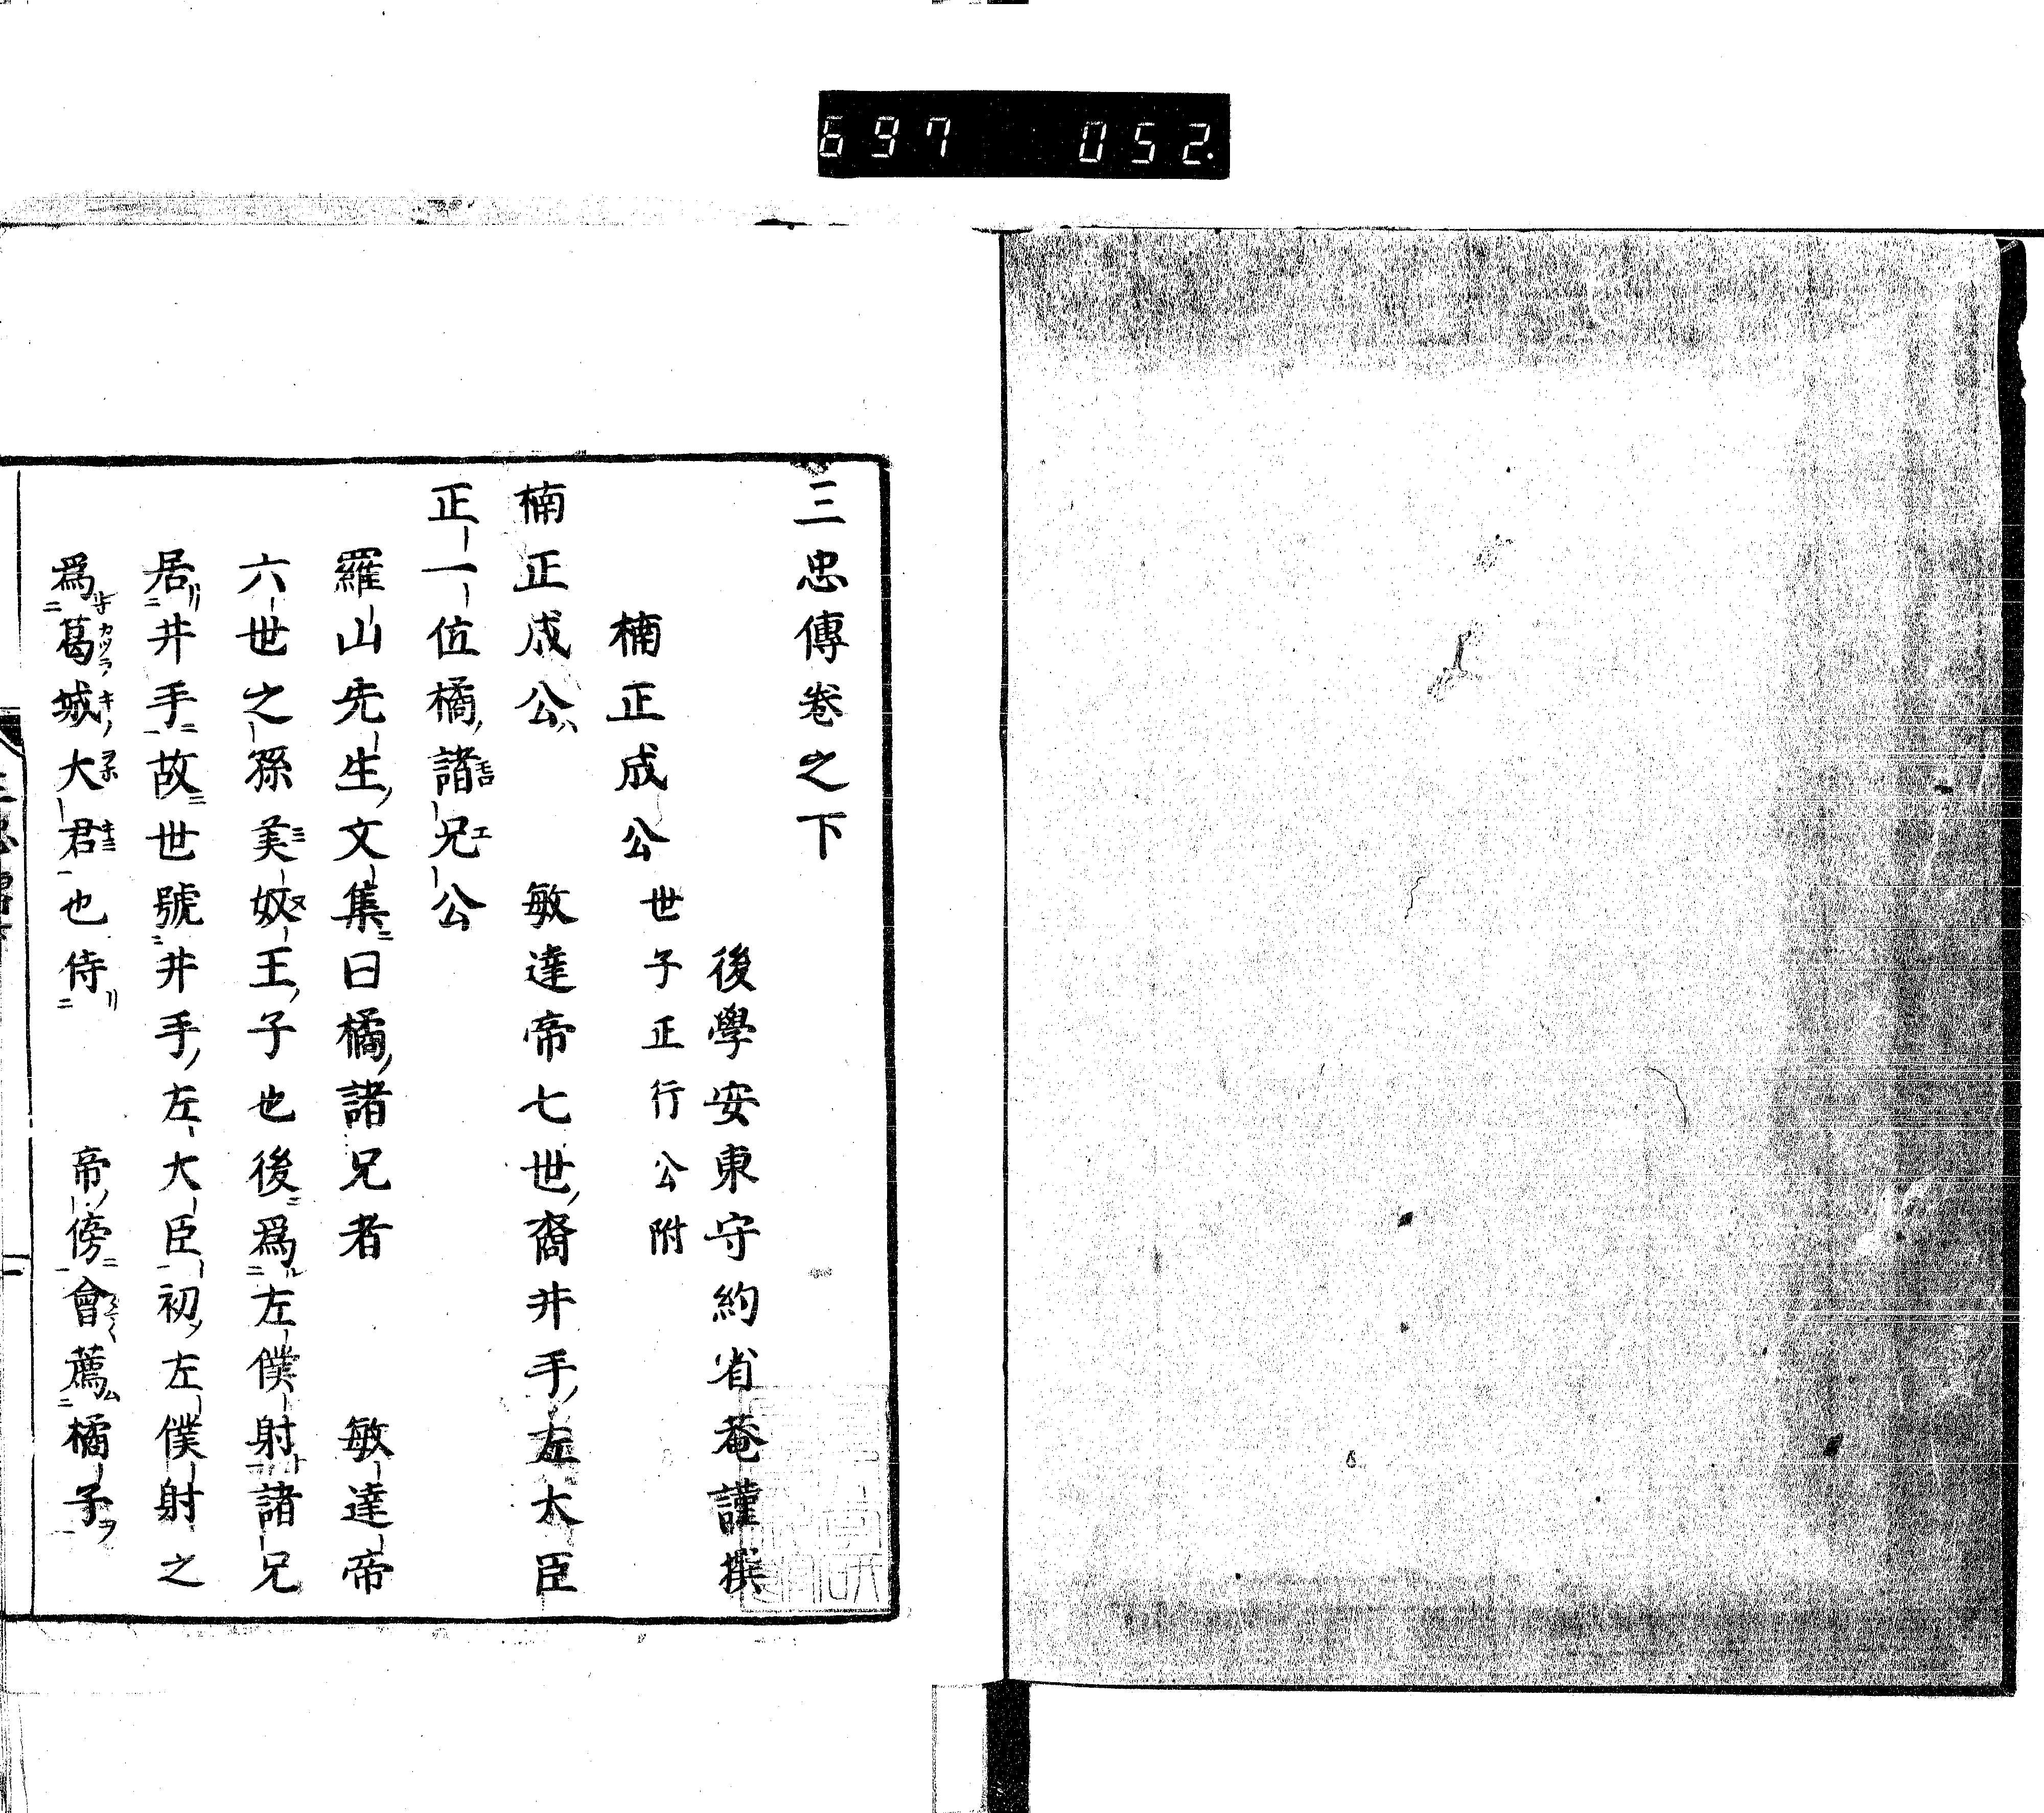 697 052.
三忠傳卷之下
後學安東守約省菴謹撰
楠正成公世子正行公附
楠正成公ハ　敏達帝七世ノ裔井手ノ左大臣
正一位橘ノ諸兄公
羅山先生ノ文集ニ曰橘ノ諸兄者　敏達帝
六世之孫美奴王ノ子也後ニ爲左僕射諸兄
居井手故世號井手ノ左大臣初ノ左僕射之
爲葛城大君也侍　帝ノ傍會薦橘子ヲ